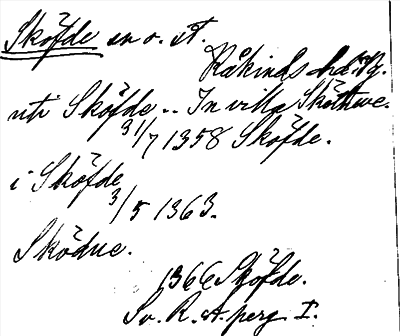 Sköfde sn o. st.
Kåkinds hd. Vg.
uti Sköfde .. In villa Sköthwe.
31/7 1358 Sköfde.
i Sköfde
3/5 1363.
Ködue.
1366 Sköfde.
Sv. R. A. perg. I.